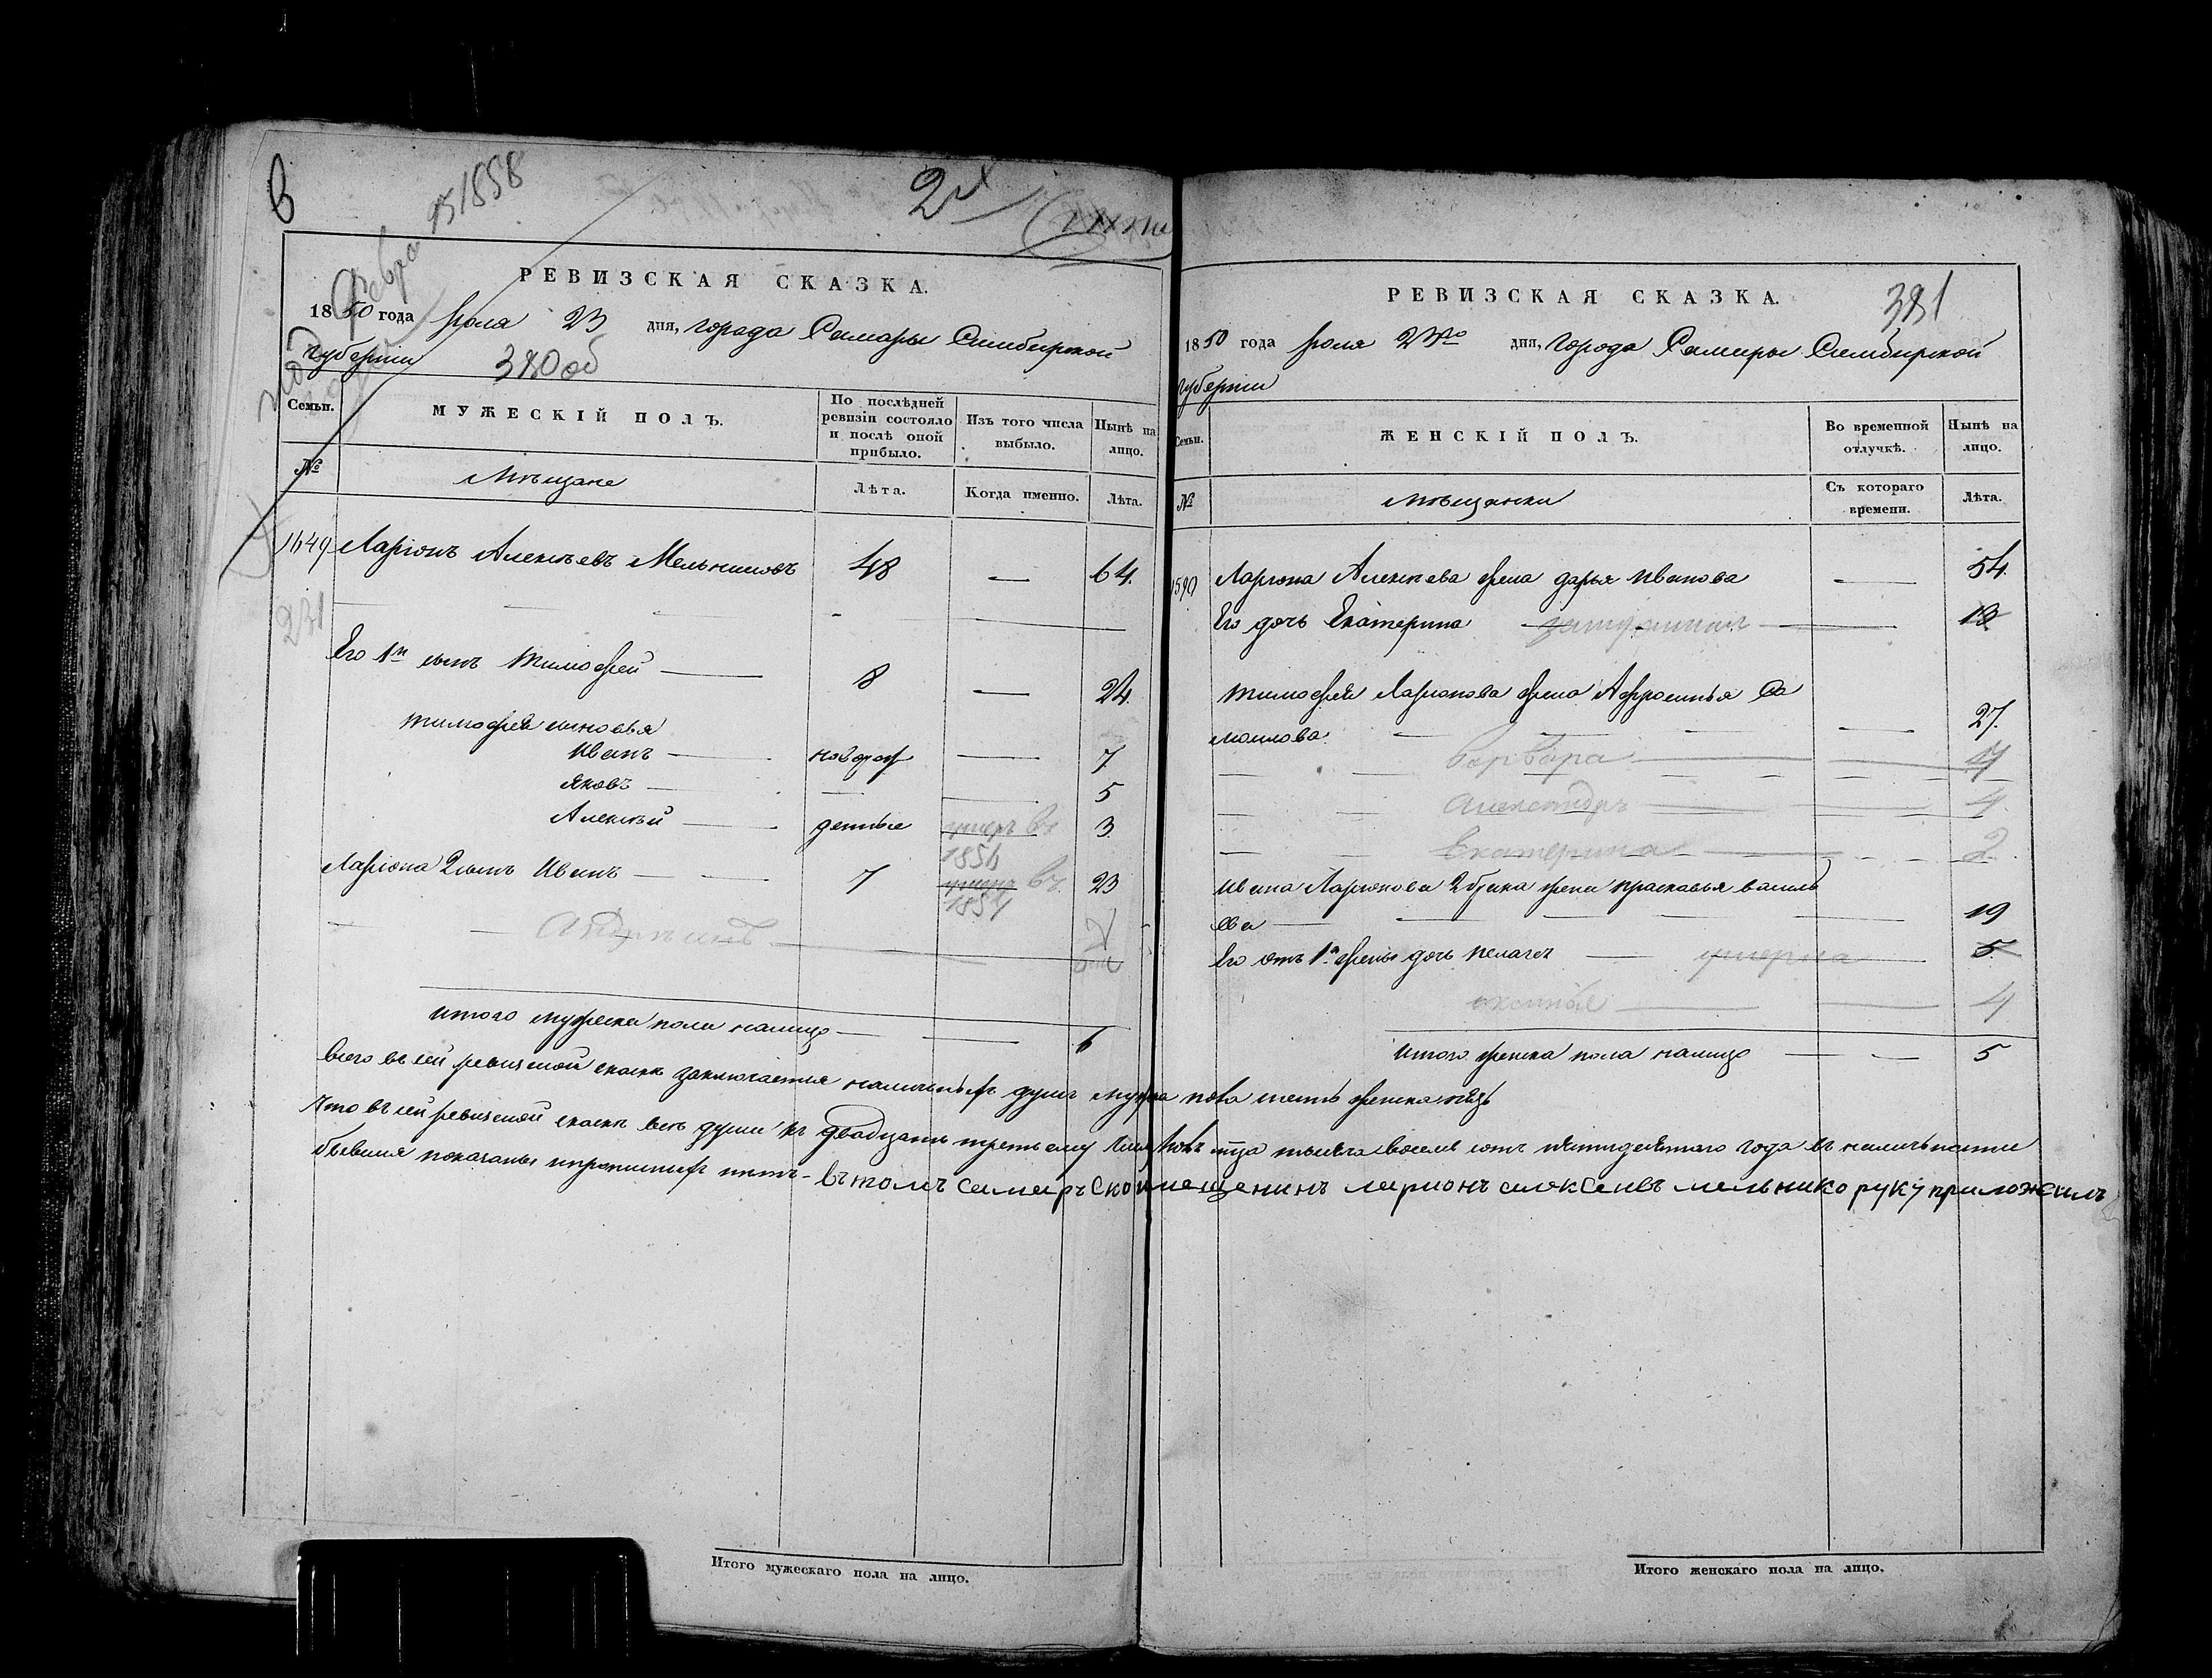 6
Февра 15 1858
2й
РЕВИЗСКАЯ СКАЗКА.
1850 года Июля 23 дня, города Самары Симбирской
губернии
380 об
Семьи.
МУЖЕСКІЙ ПОЛЪ.
По послѣдней ревизіи состояло и послѣ оной прибыло.
Изъ того числа выбыло.
Нынѣ на лицо.
№
Мѣщане
Лѣта.
Когда именно.
Лѣта.
1649 Ларіонъ Алексѣевъ Мельниковъ 48 — 64.
231
Его 1й сынъ Тимофей — 8 — 24.
Тимофея сыновья
Иванъ — новорож — 7
Яковъ — — — 5
Алексѣй — денные умеръ въ 1854 3
Ларіона 2 сынъ Иванъ — 7 умеръ въ 1854 23
итого мужеска пола налицо — 6
РЕВИЗСКАЯ СКАЗКА.
381
1850 года Июля 23го дня, города Самары Симбирской
губернии
Семьи.
ЖЕНСКІЙ ПОЛЪ.
Во временной отлучкѣ.
Нынѣ на лицо.
№
мѣщанки
Съ котораго времени.
Лѣта.
1590 Лариона Алексѣева жена дарья Иванова — 54.
Его дочь Екатерина замужняя — 13
Тимофея Ларионова жена Афросинья Са
моилова — 27.
Варвара
Александръ 4
Екатерина 2
Ивана Ларионова жена прасковья василь
ева — 19
Его отъ 1й жены дочь пелагея — умерла 5
4
итого женска пола налицо — 5
Всего въ сей ревизской сказкѣ заключается наличныхъ душъ мужеска пола шесть женска пять
Что въ сей ревизской сказкѣ всѣ души къ двадцать третьему числу Июля мца тысяча восемь сотъ пятидесятаго года въ наличьности
бывшия показаны и прописныхъ нѣтъ - въ томъ самарской мещенинъ ларионъ алексеивъ мельнико руку приложилъ
Итого мужескаго пола на лицо.
Итого женскаго пола на лицо.